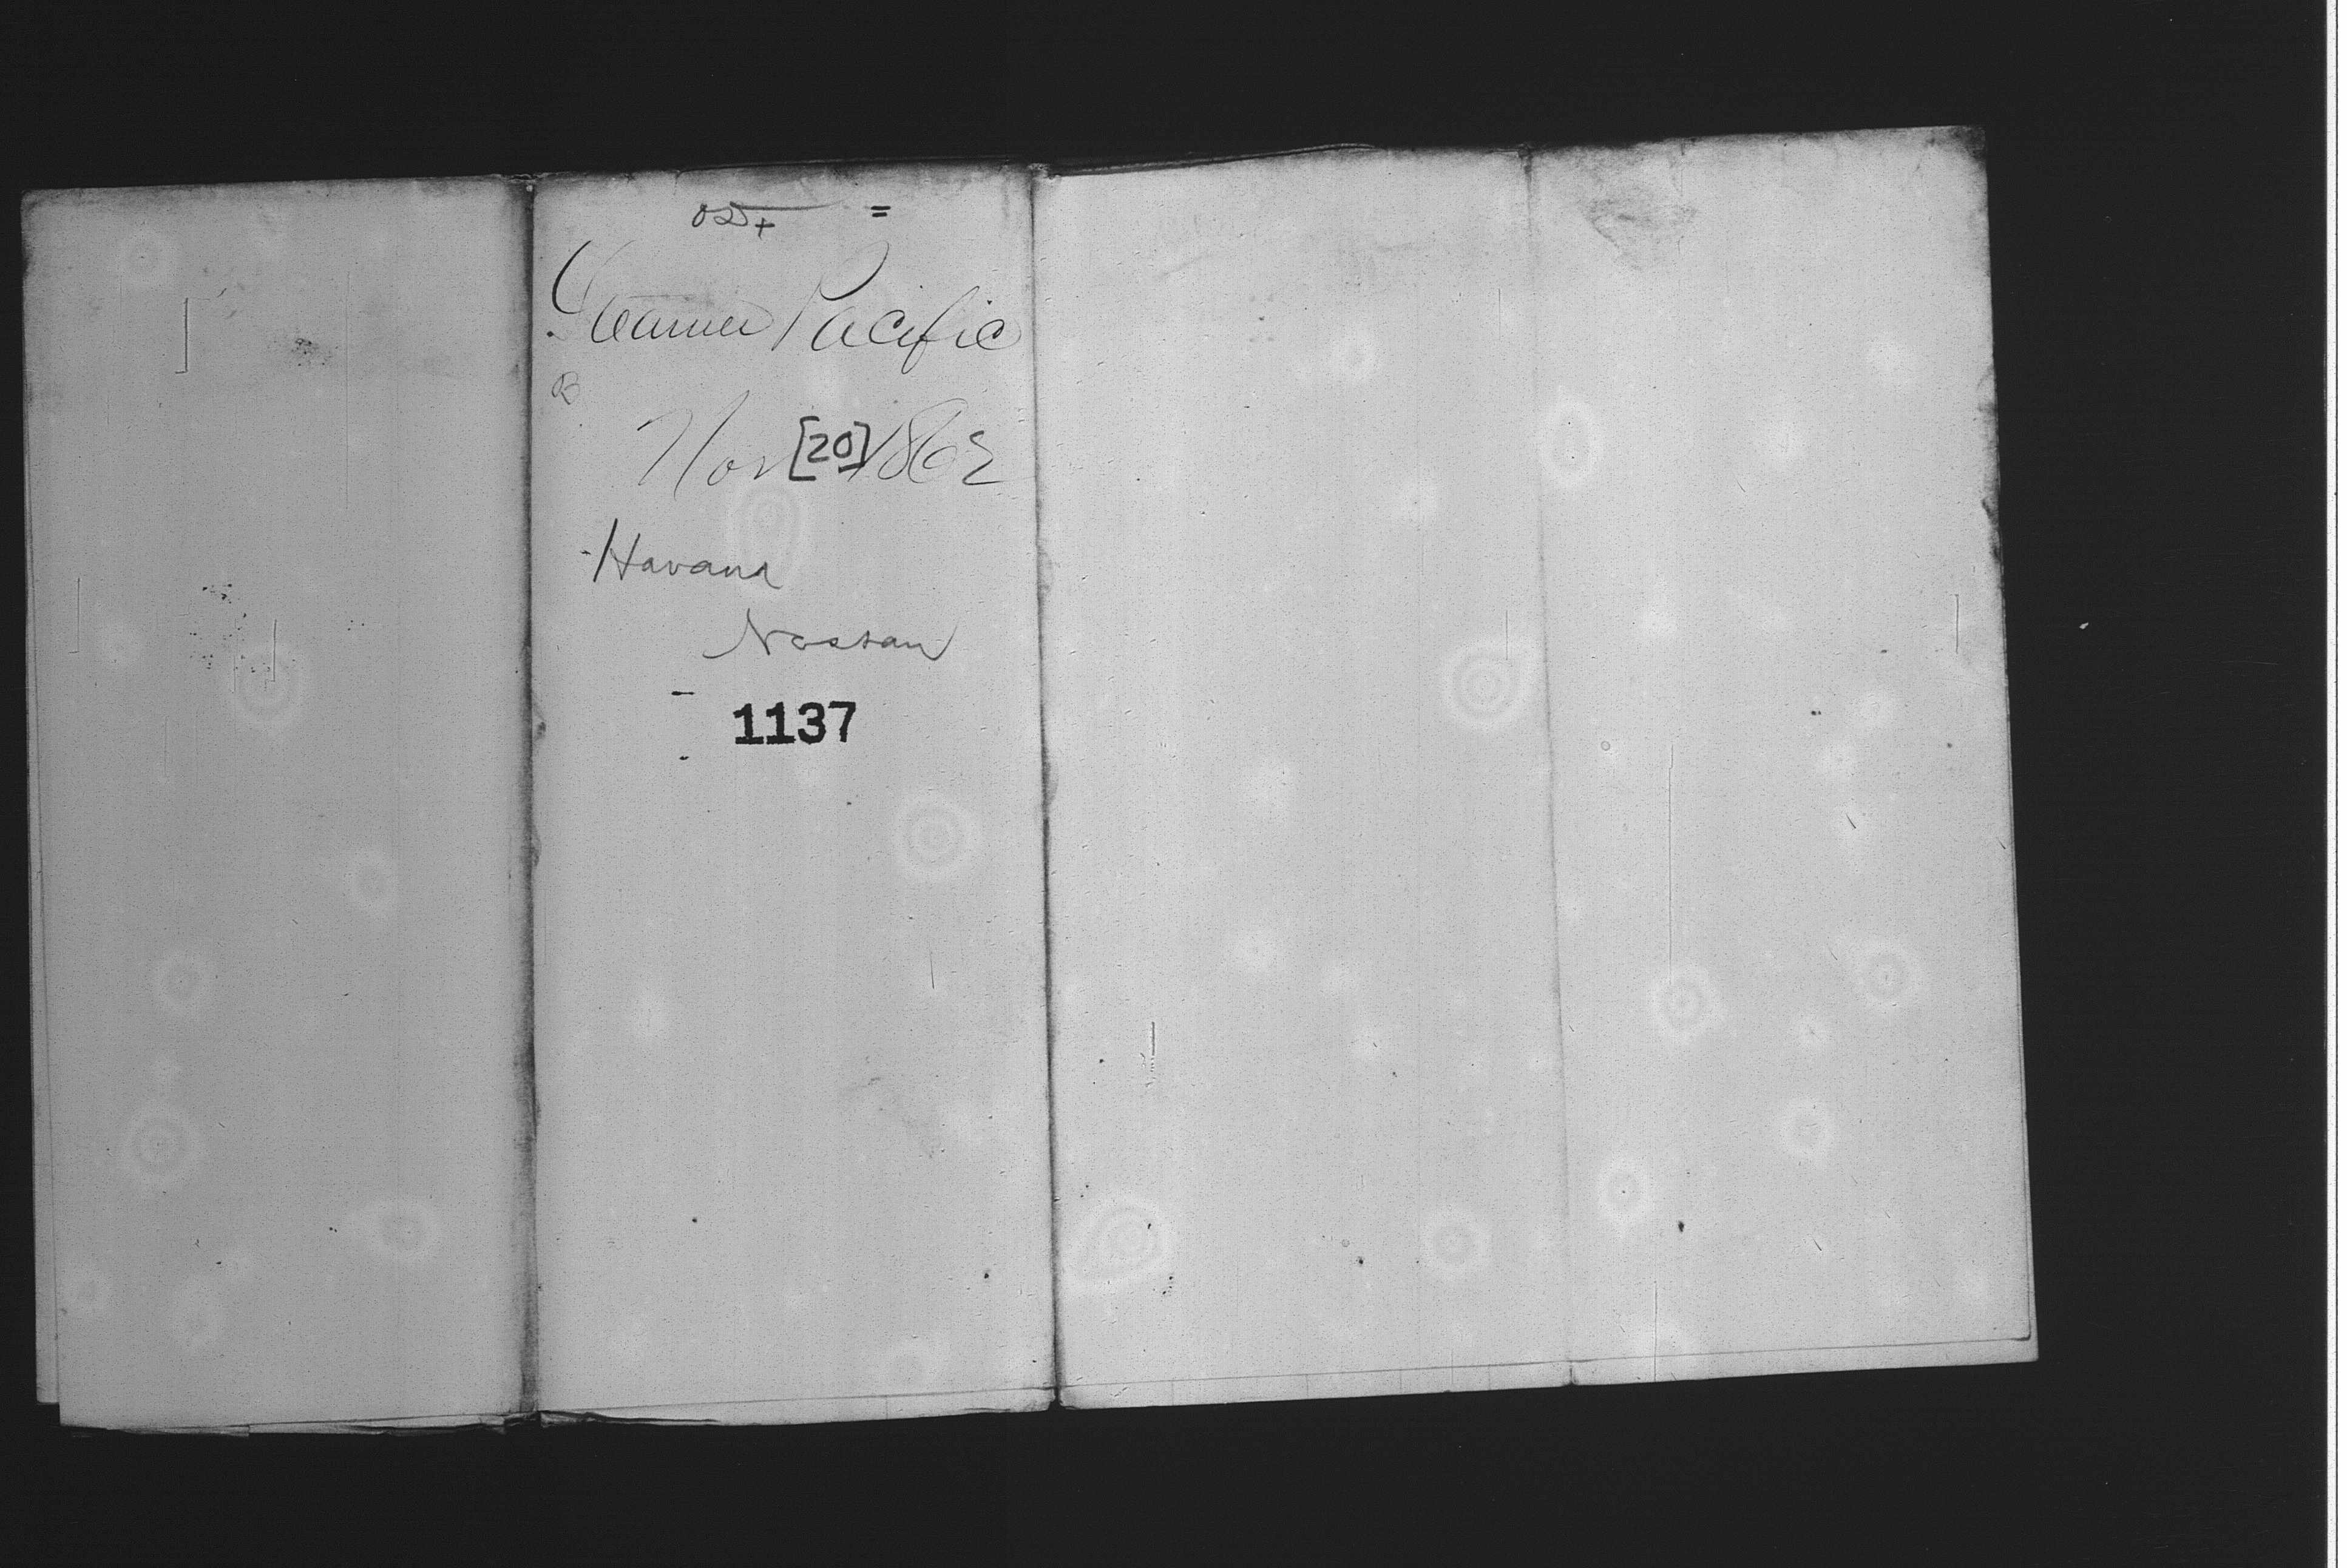 Steamer Pacific
B
Nov [20] 1862
Havana
Nassau
1137